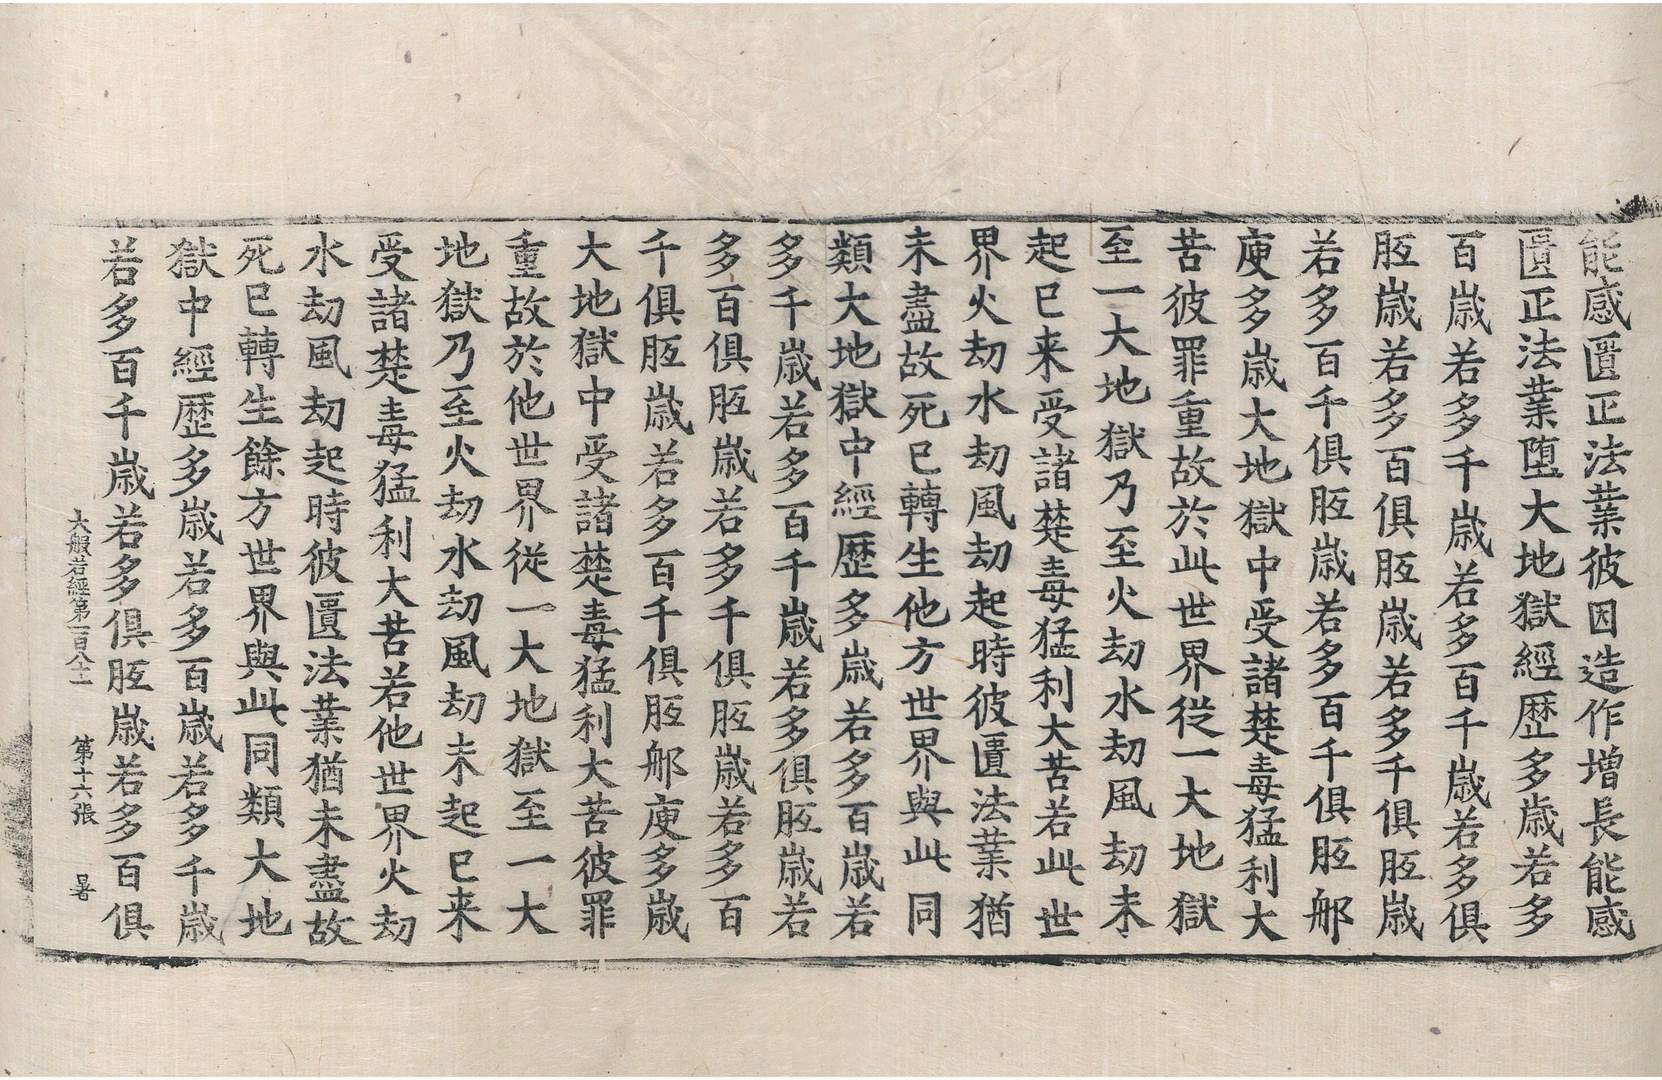 能感匱正法業彼因造作增長能感
匱正法業墮大地獄經歷多歲若多
百歲若多千歲若多百千歲若多俱
胝歲若多百俱胝歲若多千俱胝歲
若多百千俱胝歲若多百千俱胝那
庾多歲大地獄中受諸楚毒猛利大
苦彼罪重故於此世界從一大地獄
至一大地獄乃至火劫水劫風劫未
起已来受諸楚毒猛利大苦若此世
界火劫水劫風劫起時彼匱法業猶
未盡故死已轉生他方世界與此同
類大地獄中經歷多歲若多百歲若
多千歲若多百千歲若多俱胝歲若
多百俱胝歲若多千俱胝歲若多百
千俱胝歲若多百千俱胝那庾多歲
大地獄中受諸楚毒猛利大苦彼罪
重故於他世界從一大地獄至一大
地獄乃至火劫水劫風劫未起已来
受諸楚毒猛利大苦若他世界火劫
水劫風劫起時彼匱法業猶未盡故
死已轉生餘方世界與此同類大地
獄中經歷多歲若多百歲若多千歲
若多百千歲若多俱胝歲若多百俱
大般若經第一百八十一 第十六張 暑